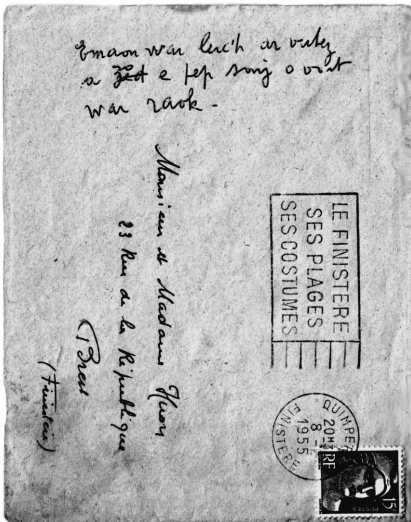 Emaon war lerc'h ar
a e pep
war raok -
Monsieur et Madame Huon
23 Rue de la République
Brest
(Finistère)
LE FINISTERE
SES PLAGES
SES COSTUMES
QUIMPER
20H
8-
1955
FINISTERE
RF
15
POSTES